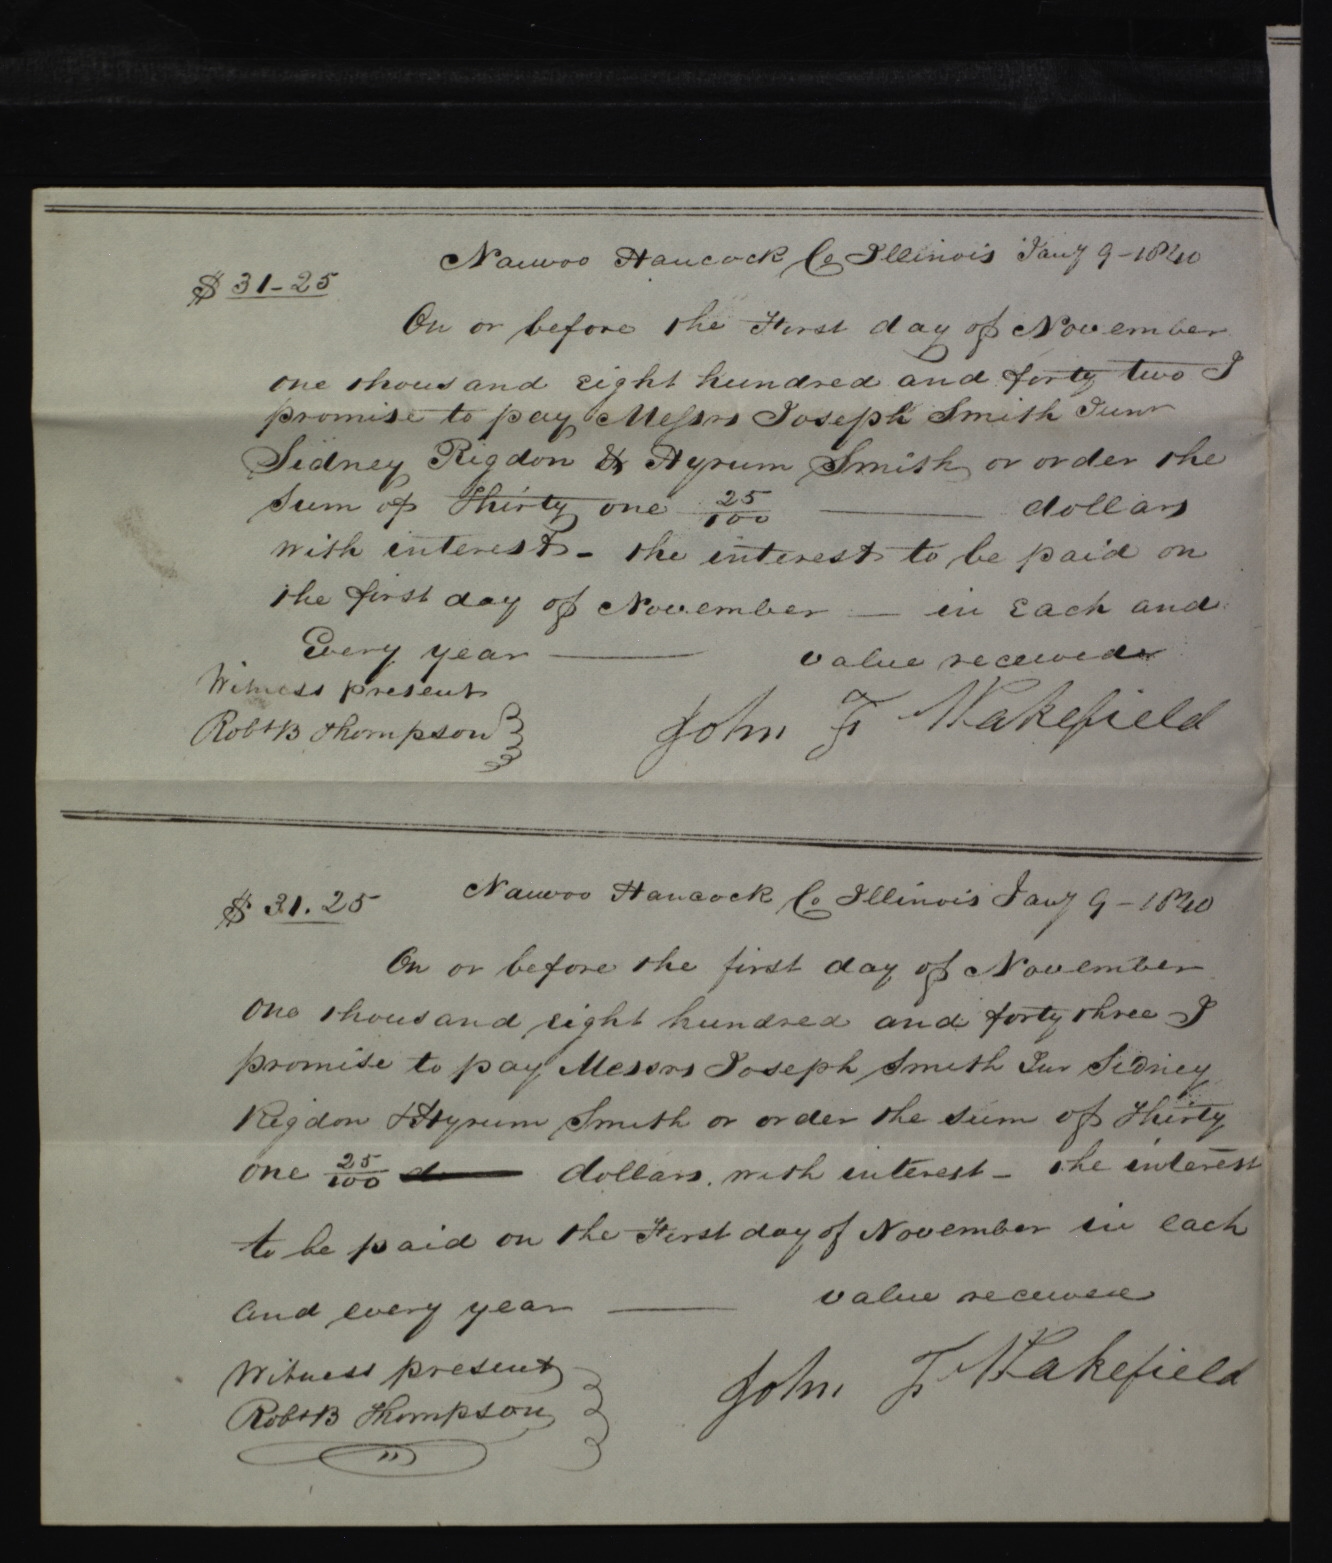 Nauvoo Hancock Co Illinois Jany 9-1840
$ 31-25
On or before the First day of November
one thousand eight hundred and forty two I
promise to pay Messrs Joseph Smith Junr
Sidney Rigdon & Hyrum Smith or order the
Sum of Thirty one 25/100 ——— dollars
with interest - the interest to be paid on
the first day of November — in Each and
Every year ——— value received
Witness present
Robt B Thompson
John F Wakefield
Nauvoo Hancock Co Illinois Jany 9-1840
$ 31.25
On or before the first day of November
One thousand eight hundred and forty three I
promise to pay Messrs Joseph Smith Jur Sidney
Rigdon & Hyrum Smith or order the sum of Thirty
one 25/100 d dollars. with interest - the interest
to be paid on the First day of November in each
and every year ——— value received
Witness present
Robt B Thompson
John F Wakefield